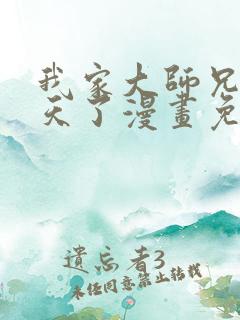 我家大師兄
天了漫畫免
遺忘者3
未經同意禁止轉載